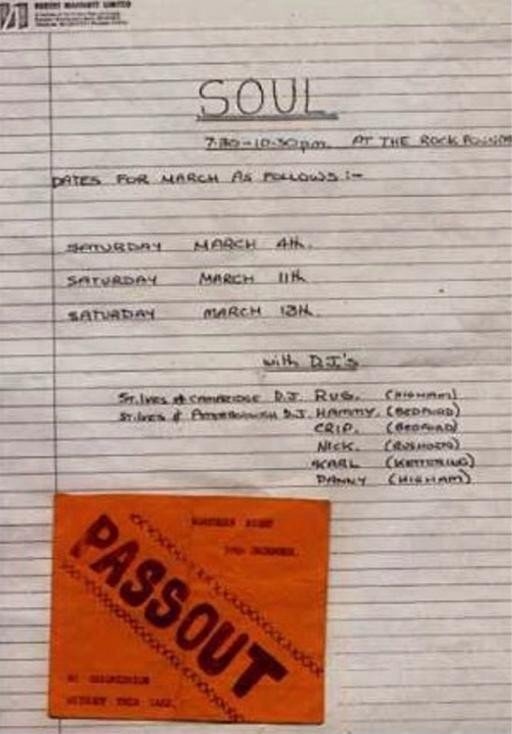 ROBERT MARRIOTT LIMITED
SOUL
7.30-10.30pm. AT THE ROCK
DATES FOR MARCH AS FOLLOWS :-
SATURDAY MARCH 4th.
SATURDAY MARCH 11th
SATURDAY MARCH 18th.
with D.J's
St. Ives & CAMBRIDGE D.J. RUG. (HIGHAM)
St. Ives & PETERBOROUGH D.J. HAMMY. (BEDFORD)
CRIP. (BEDFORD)
NICK. (RUSHDEN)
KARL (KETTERING)
DANNY (HIGHAM)
NORTHERN NIGHT
DECEMBER.
PASSOUT
NO READMISSION
WITHOUT THIS CARD.